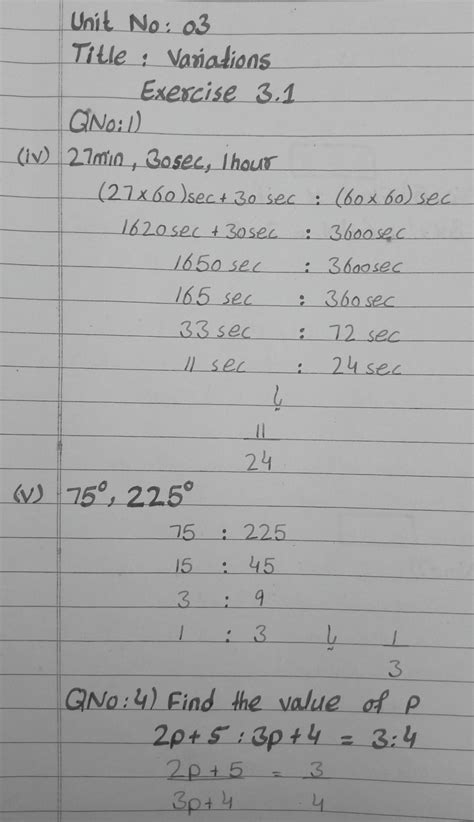 Unit No: 03
Title : Variations
Exercise 3.1
QNo:1)
(iv) 27min, 30sec, 1hour
(27×60)sec+30 sec : (60×60) sec
1620sec +30sec : 3600sec
1650 sec : 3600sec
165 sec : 360sec
33sec : 72 sec
11 sec : 24 sec
یا
11
24
(v) 75°, 225°
75 : 225
15 : 45
3 : 9
1 : 3 یا 1
3
QNo:4) Find the value of p
2p+5 : 3p+4 = 3:4
2p+5 = 3
3p+4 4